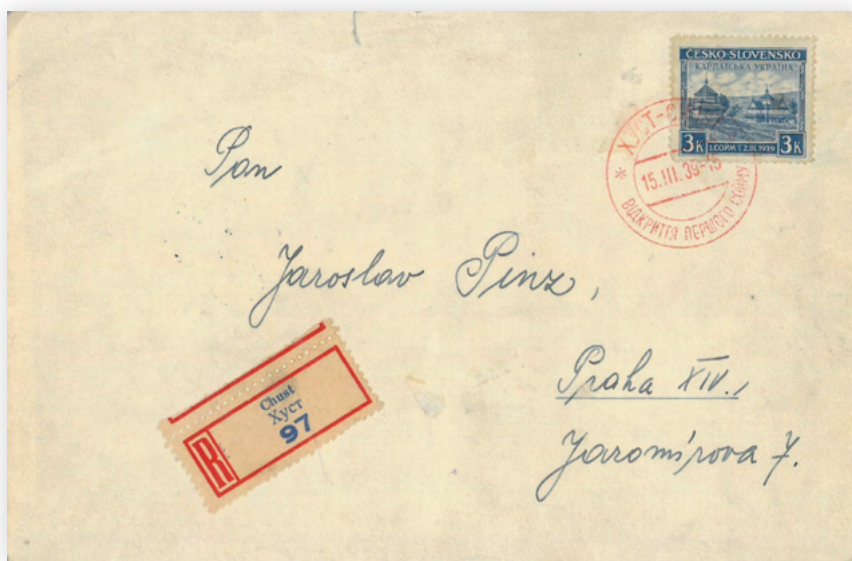 ČESKO-SLOVENSKO
КАРПАТСЬКА УКРАЇНА
3K I.СОЙМ 2.III.1939 3K
ХУСТ-
15.III.39-15
ВІДКРИТТЯ ПЕРШОГО СОЙМУ
Pan
Jaroslav Pinz,
Praha XIV.,
Jaromírova 7.
R
Chust
Хуст
97